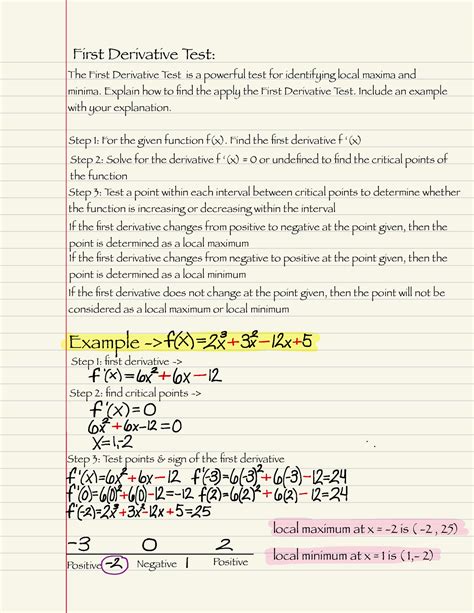 First Derivative Test:
The First Derivative Test is a powerful test for identifying local maxima and
minima. Explain how to find the apply the First Derivative Test. Include an example
with your explanation.
Step 1: For the given function f(x). Find the first derivative f '(x)
Step 2: Solve for the derivative f '(x) = 0 or undefined to find the critical points of
the function
Step 3: Test a point within each interval between critical points to determine whether
the function is increasing or decreasing within the interval
If the first derivative changes from positive to negative at the point given, then the
point is determined as a local maximum
If the first derivative changes from negative to positive at the point given, then the
point is determined as a local minimum
If the first derivative does not change at the point given, then the point will not be
considered as a local maximum or local minimum
Example -> f(x)=2x³+3x²-12x+5
Step 1: first derivative ->
f'(x)=6x²+6x-12
Step 2: find critical points ->
f'(x)=0
6x²+6x-12=0
x=1,-2
Step 3: Test points & sign of the first derivative
f'(x)=6x²+6x-12 f'(-3)=6(-3)²+6(-3)-12=24
f'(0)=6(0)²+6(0)-12=-12 f(2)=6(2)²+6(2)-12=24
f'(-2)=2x³+3x²-12x+5=25
local maximum at x = -2 is (-2, 25)
-3 0 2
local minimum at x = 1 is (1,-2)
Positive -2 Negative 1 Positive